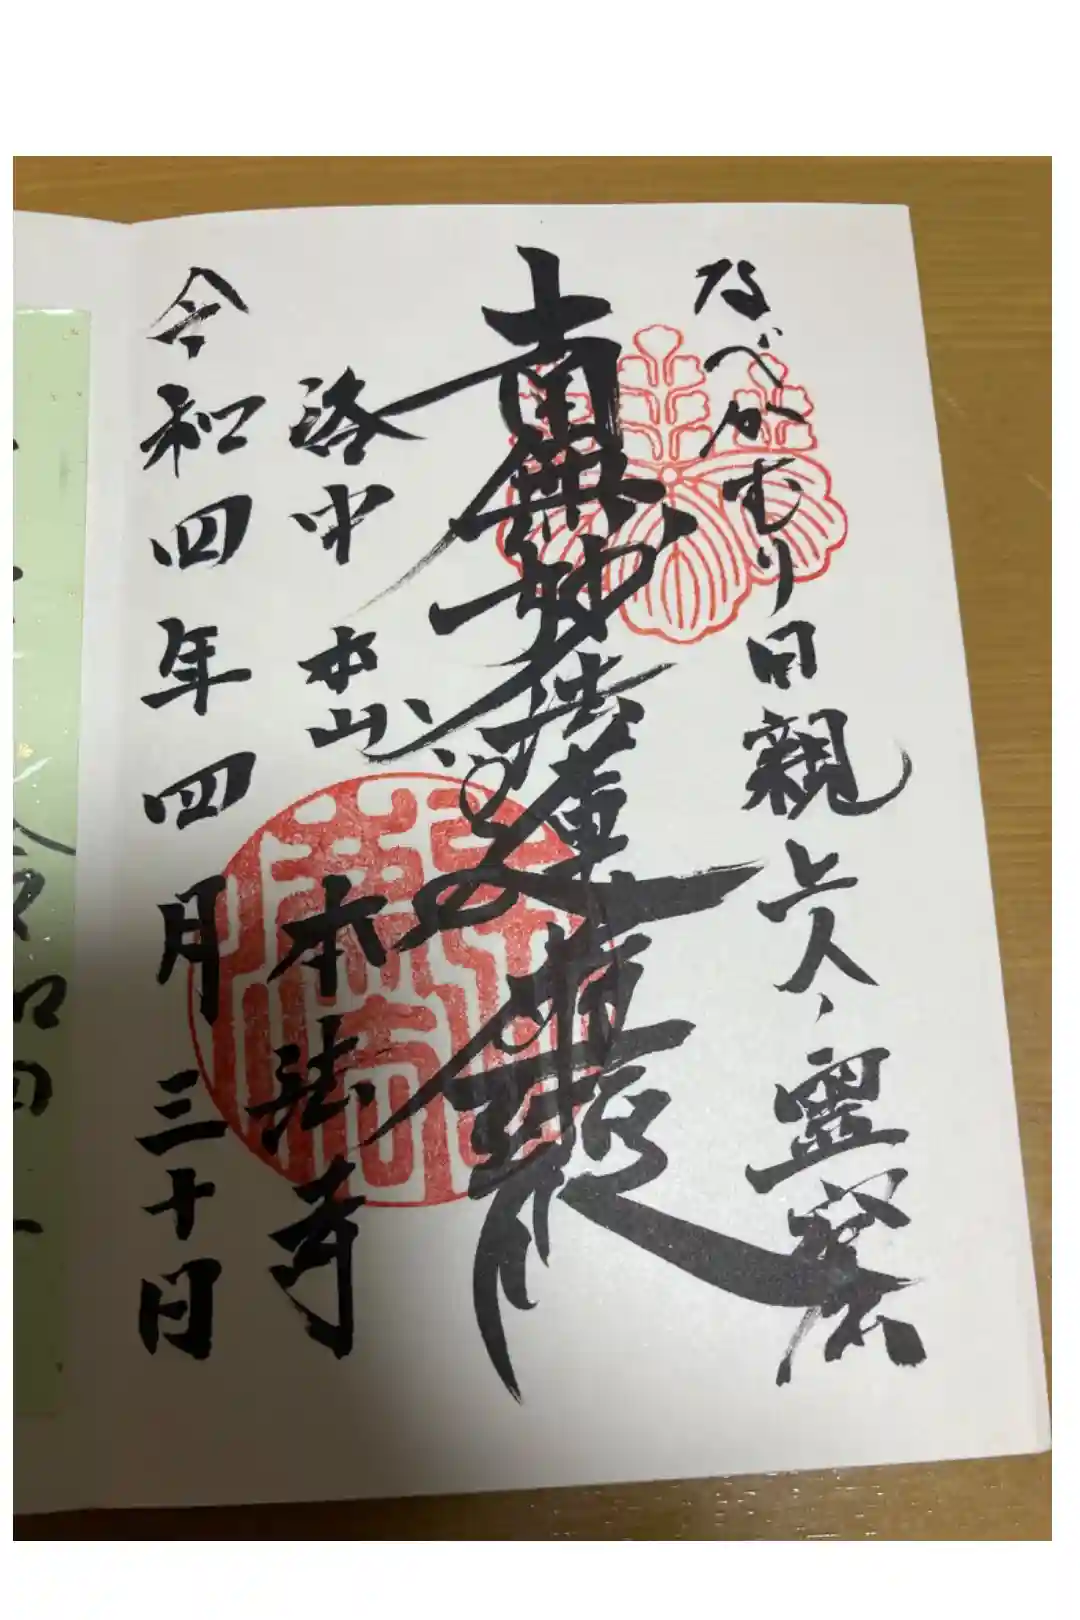 なべかむり日親上人霊窟
南無妙法蓮華経
洛中 本山 本法寺
令和四年四月三十日
令和四